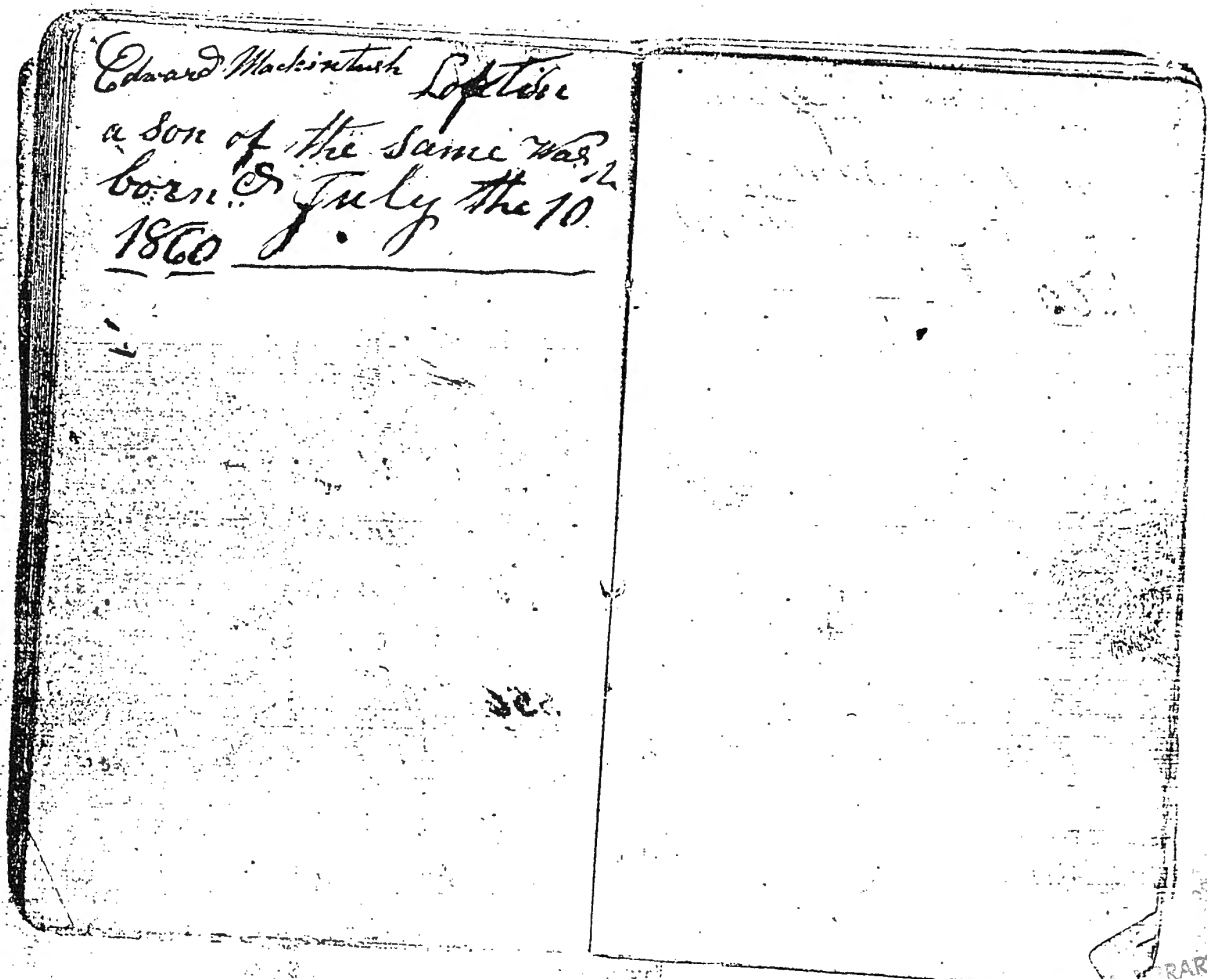 Edward Mackintush Loftin
a son of the same was
born July the 10th
1860
RAR